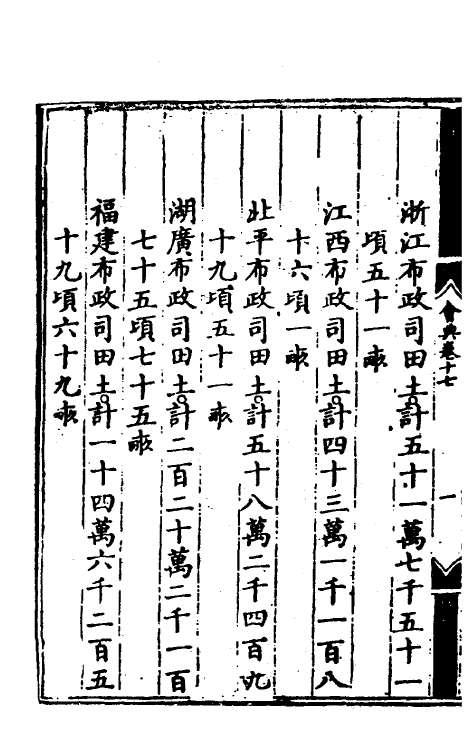 會典卷十七
一
浙江布政司田土計五十一萬七千五十一
頃五十一畞
江西布政司田土計四十三萬一千一百八
十六頃一畞
北平布政司田土計五十八萬二千四百九
十九頃五十一畞
湖廣布政司田土計二百二十萬二千一百
七十五頃七十五畞
福建布政司田土計一十四萬六千二百五
十九頃六十九畞